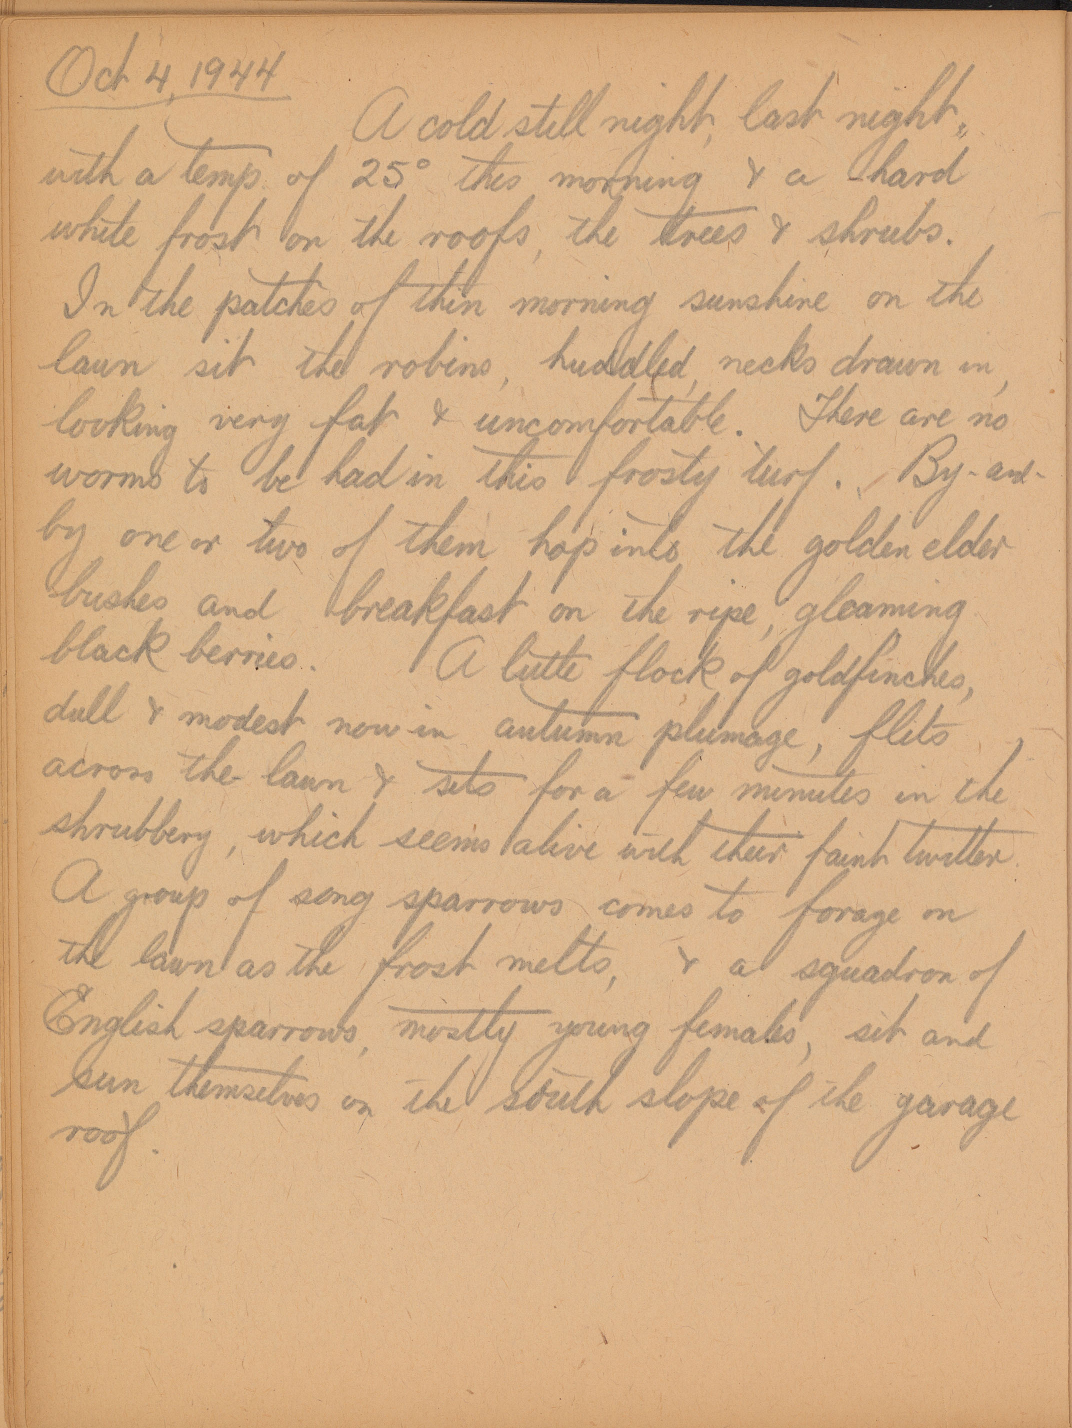 Oct 4, 1944
A cold still night, last night,
with a temp. of 25° this morning & a hard
white frost on the roofs, the trees & shrubs.
In the patches of thin morning sunshine on the
lawn sit the robins, huddled, necks drawn in,
looking very fat & uncomfortable. There are no
worms to be had in this frosty turf. By-and-
by one or two of them hop into the golden elder
bushes and breakfast on the ripe, gleaming
black berries. A little flock of goldfinches,
dull & modest now in autumn plumage, flits
across the lawn & sits for a few minutes in the
shrubbery, which seems alive with their faint twitter.
A group of song sparrows comes to forage on
the lawn as the frost melts, & a squadron of
English sparrows, mostly young females, sit and
sun themselves on the south slope of the garage
roof.